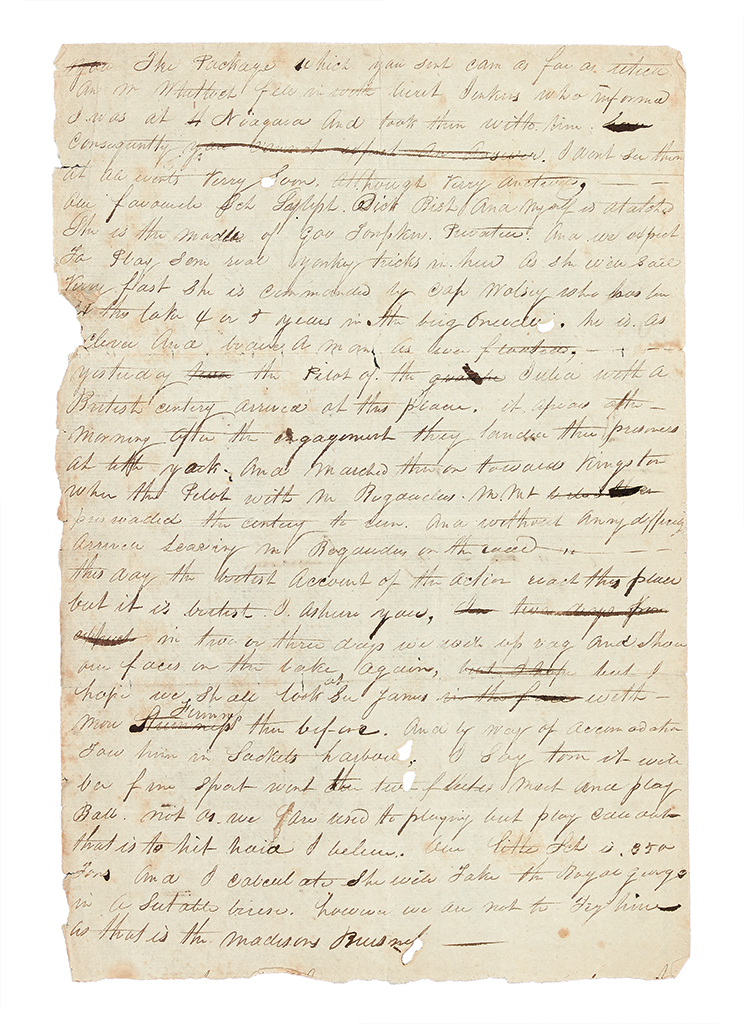 The Package which you sent cam as far as
An Mr fell in with Leut Jenkins who informd
I was at Niagara And took them with him.
Consequently you cannot expect An Answer. I wont see them
at all events Verry Soon. although Verry Anctious,
our favourite Sch Sylph. Dick Rist And myself is atatched
She is the modle of Gov Tompkins. Privateer. And we expect
To Play Som real yankey tricks in her As She will Sail
Verry fast She is commanded by Cap Wolsey who has ben
on this lake 4 or 5 years in the brig Oneida. he is as
Clever And brave A man as ever floated,
yesterday the Pilot of the Julia with A
British centery arrived at this place. it apears the
morning after the engagement they landed there prisoners
at little york. And marched them on towards Kingston
when the Pilot with Mr
perswaded the centery to run. And without Anny difficulty
Arrived Leaving Mr on the road
this day the british Account of the Action reach this place
but it is british I ashure you, in two days from
in two or three days we will up rag and Show
our faces on the Lake again, but I hope but I
hope we shall look at Sir James in the face with
more Firmness then before. And by way of Accomodation
Tow him in Sackets harbour. I Say Tom it will
be fine Sport wont the two fleetes meet and play
Ball. not as we are used to playing but play
that is to hit hard I beleive. Our little Sch is 350
Tons And I calculate She will Take the Royal george
in A Sutable breese. however we are not to Try him
as that is the Madisons Buisness